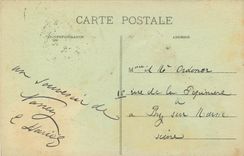 CARTE POSTALE
CORRESPONDANCE
ADRESSE
un souvenir de
Nancy
Mme et Mr Ordonor
rue de la Pépinière
à
Bry sur Marne
Seine